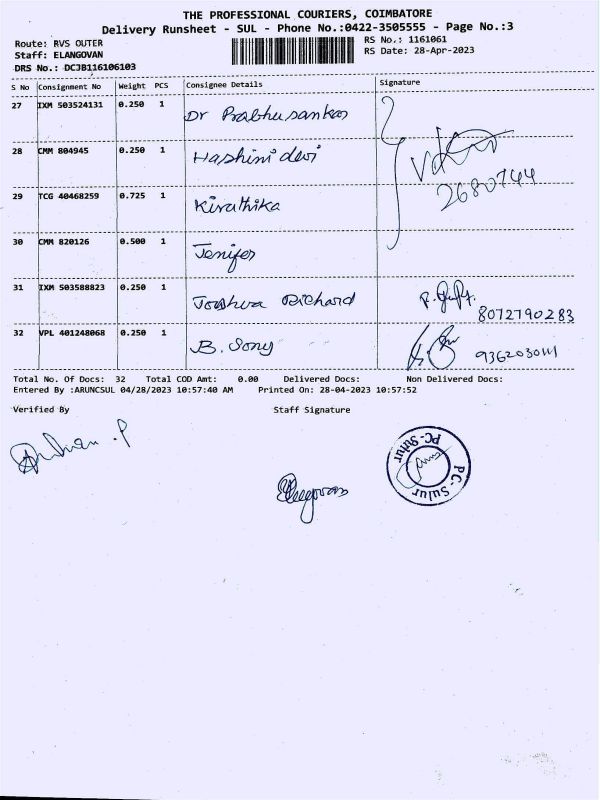 THE PROFESSIONAL COURIERS, COIMBATORE
Delivery Runsheet - SUL - Phone No.:0422-3505555 - Page No.:3
Route: RVS OUTER RS No.: 1161061
Staff: ELANGOVAN RS Date: 28-Apr-2023
DRS No.: DCJB116106103
S No Consignment No Weight PCS Consignee Details Signature
27 IXM 503524131 0.250 1 Dr Prabhusankar
28 CMM 804945 0.250 1 Hashini devi
2680744
29 TCG 40468259 0.725 1 Kiruthika
30 CMM 820126 0.500 1 Jenifer
31 IXM 503588823 0.250 1 Joshva Richard
8072790283
32 VPL 401248068 0.250 1 B. Sony 9362030111
Total No. Of Docs: 32 Total COD Amt: 0.00 Delivered Docs: Non Delivered Docs:
Entered By :ARUNCSUL 04/28/2023 10:57:40 AM Printed On: 28-04-2023 10:57:52
Verified By Staff Signature
PC-Sulur
PC-Sulur
Elangovan